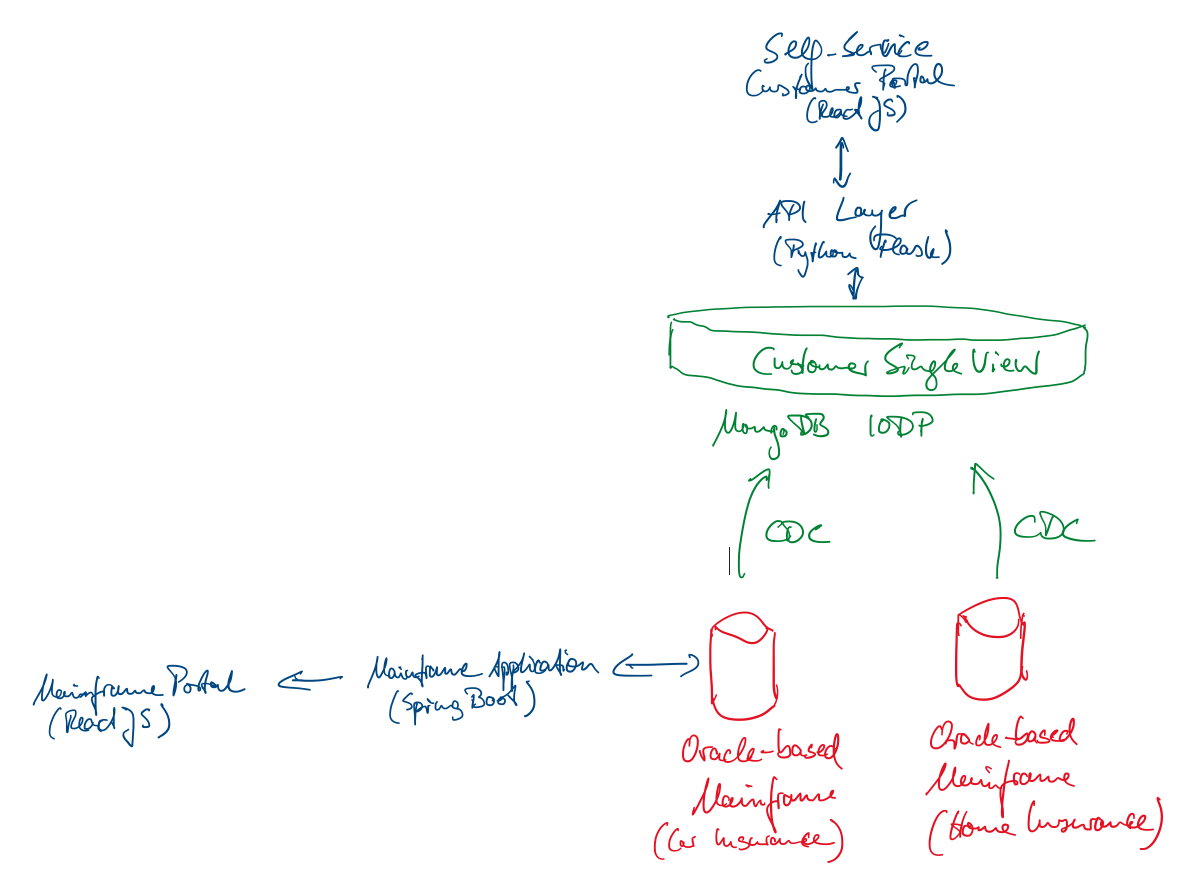 Self-Service
Customer Portal
(React JS)
API Layer
(Python Flask)
Customer Single View
MongoDB IODP
CDC
CDC
Mainframe Portal
(React JS)
Mainframe Application
(Spring Boot)
Oracle-based
Mainframe
(Car Insurance)
Oracle-based
Mainframe
(Home Insurance)